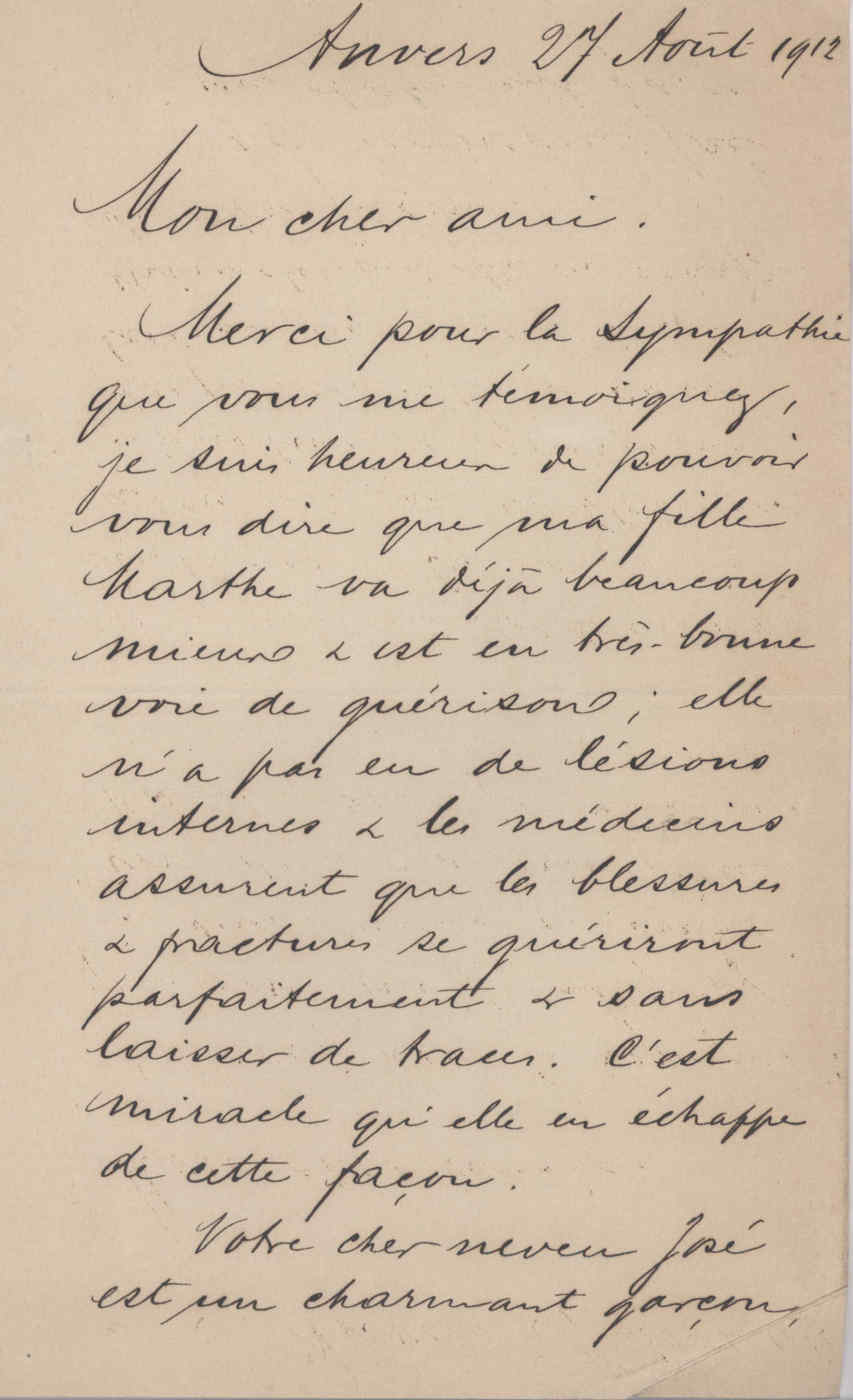 Anvers 27 Août 1912
Mon cher ami.
Merci pour la sympathie
que vous me témoignez,
je suis heureux de pouvoir
vous dire que ma fille
Marthe va déjà beaucoup
mieux & est en très-bonne
voie de guérison ; elle
n'a pas eu de lésions
internes & les médecins
assurent que les blessures
& fractures se guériront
parfaitement & sans
laisser de traces. C'est
miracle qu'elle en échappe
de cette façon.
Votre cher neveu José
est un charmant garçon,